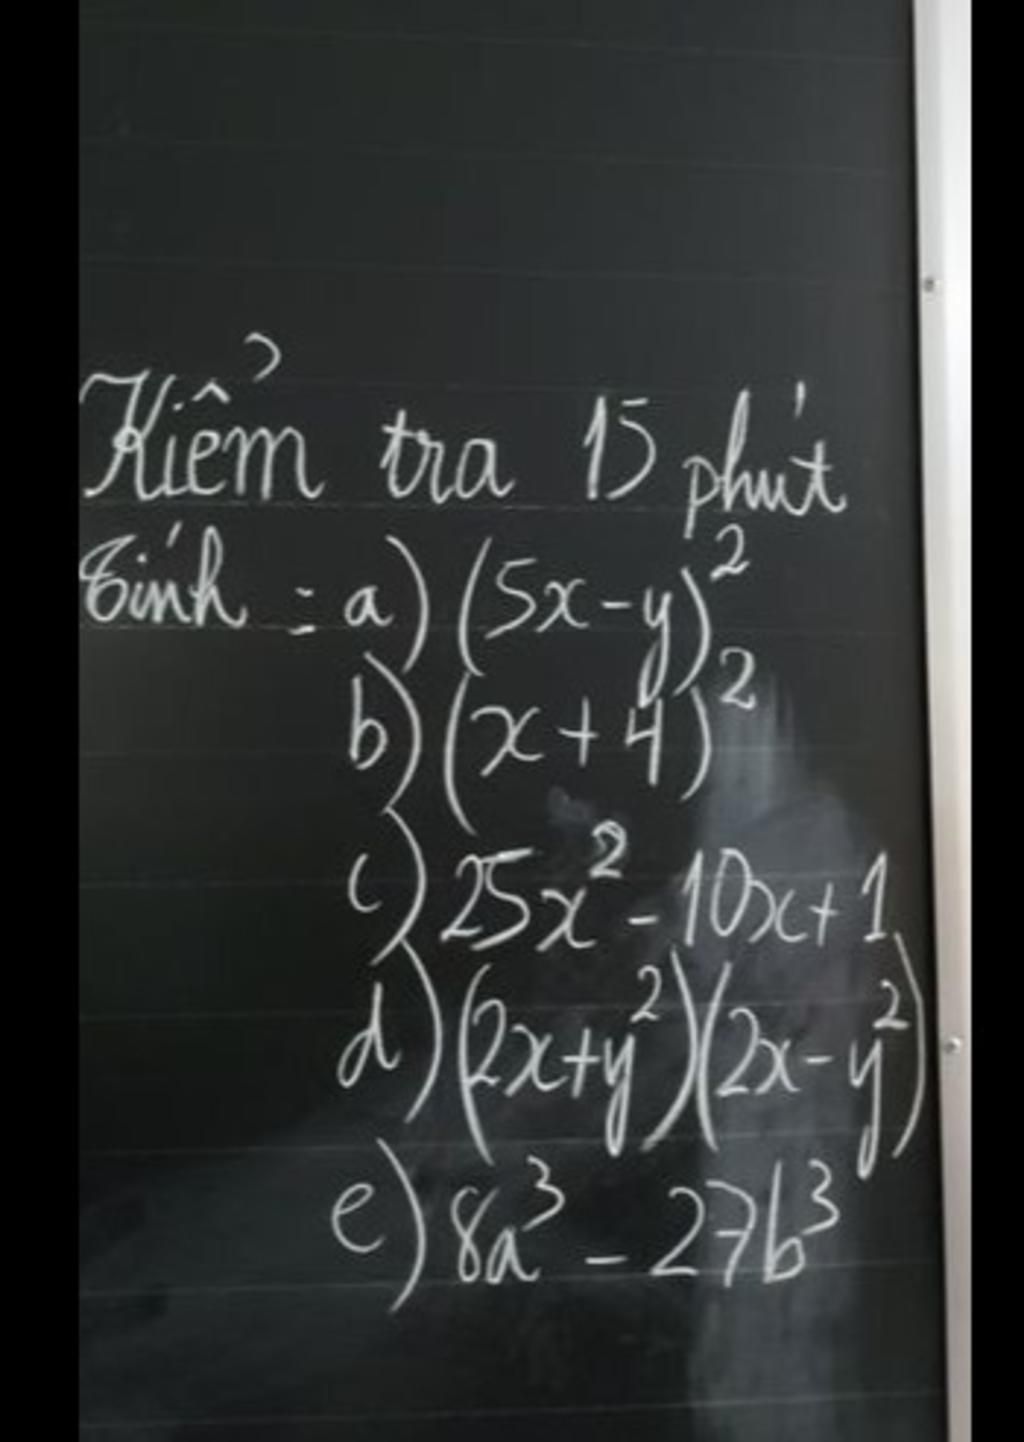 Kiểm tra 15 phút
Tính : a) (5x-y)²
b) (x+4)²
c) 25x² - 10x + 1
d) (2x+y²)(2x-y²)
e) 8a³ - 27b³